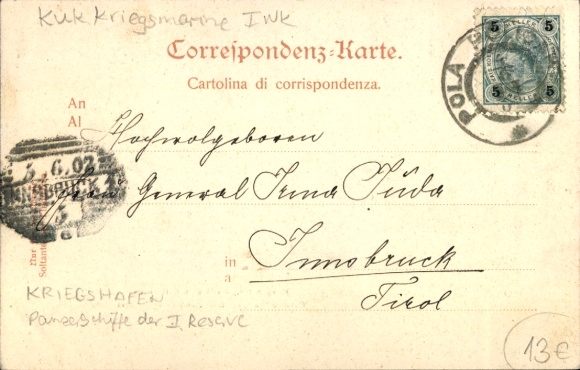 KuK Kriegsmarine INK
Correspondenz-Karte.
Cartolina di corrispondenza.
An
Al
Hochwolgeboren
Frau General Irma Tůda
in
a
Innsbruck
Tirol
POLA
5 5
5 5
5.6.02
INNSBRUCK
5
Nur
Soltanto
KRIEGSHAFEN
Panzerschiffe der I Reserve
13€